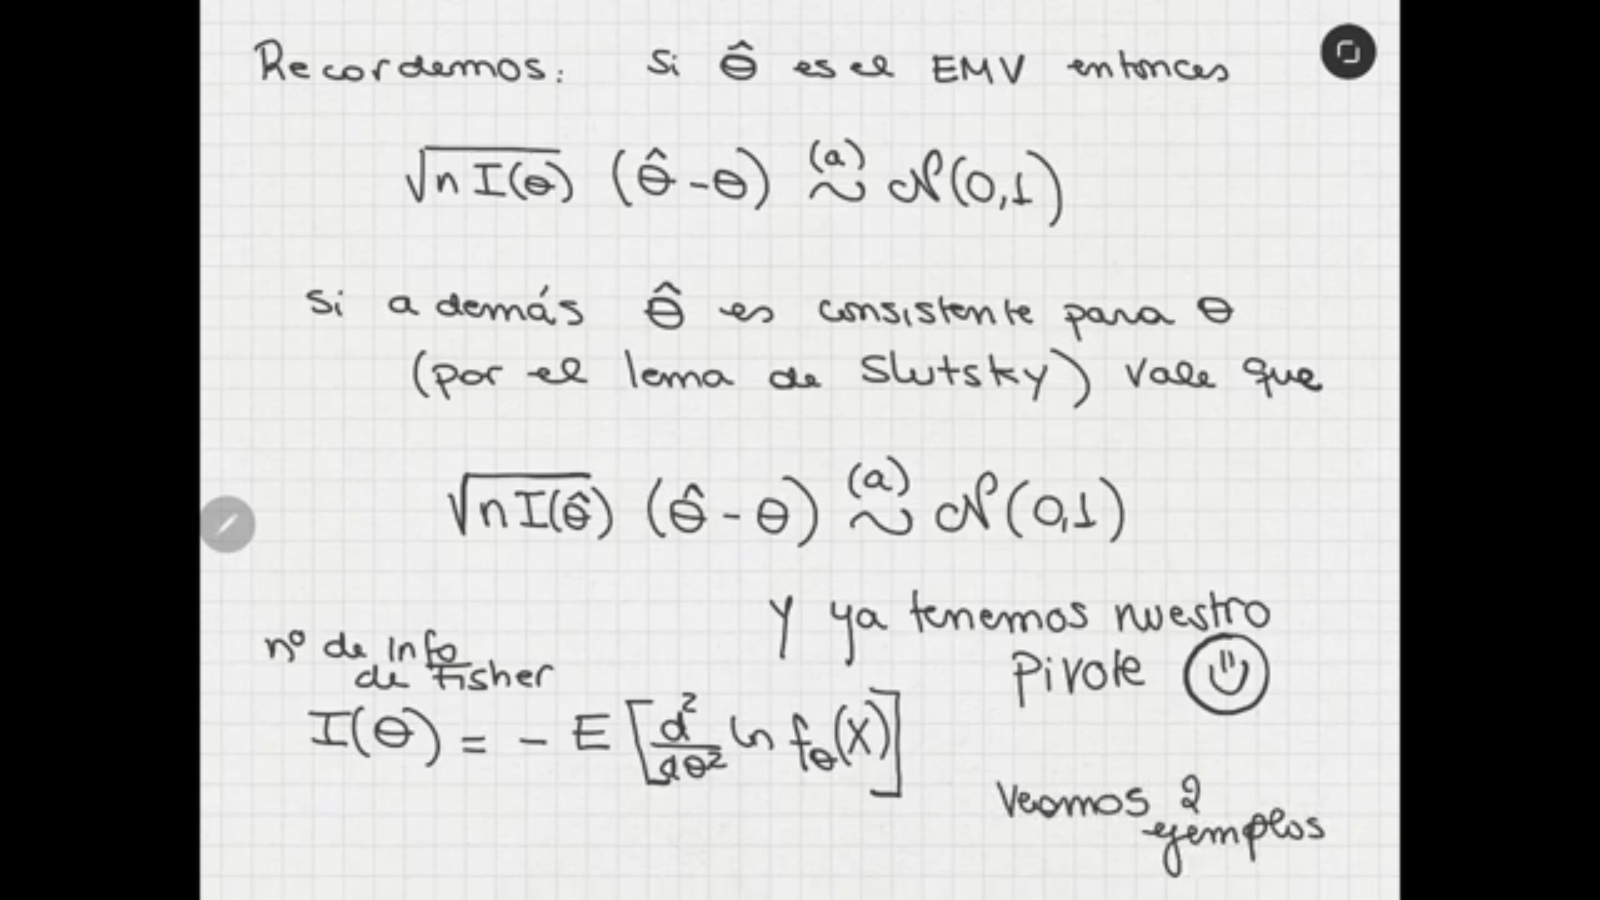 Recordemos: Si θ̂ es el EMV entonces
√n I(θ) (θ̂ - θ) (a)~ N(0,1)
Si además θ̂ es consistente para θ
(por el lema de Slutsky) vale que
√n I(θ̂) (θ̂ - θ) (a)~ N(0,1)
Y ya tenemos nuestro
pivote
nº de info
de Fisher
I(θ) = - E [d²/dθ² ln fθ(X)]
Veamos 2
ejemplos